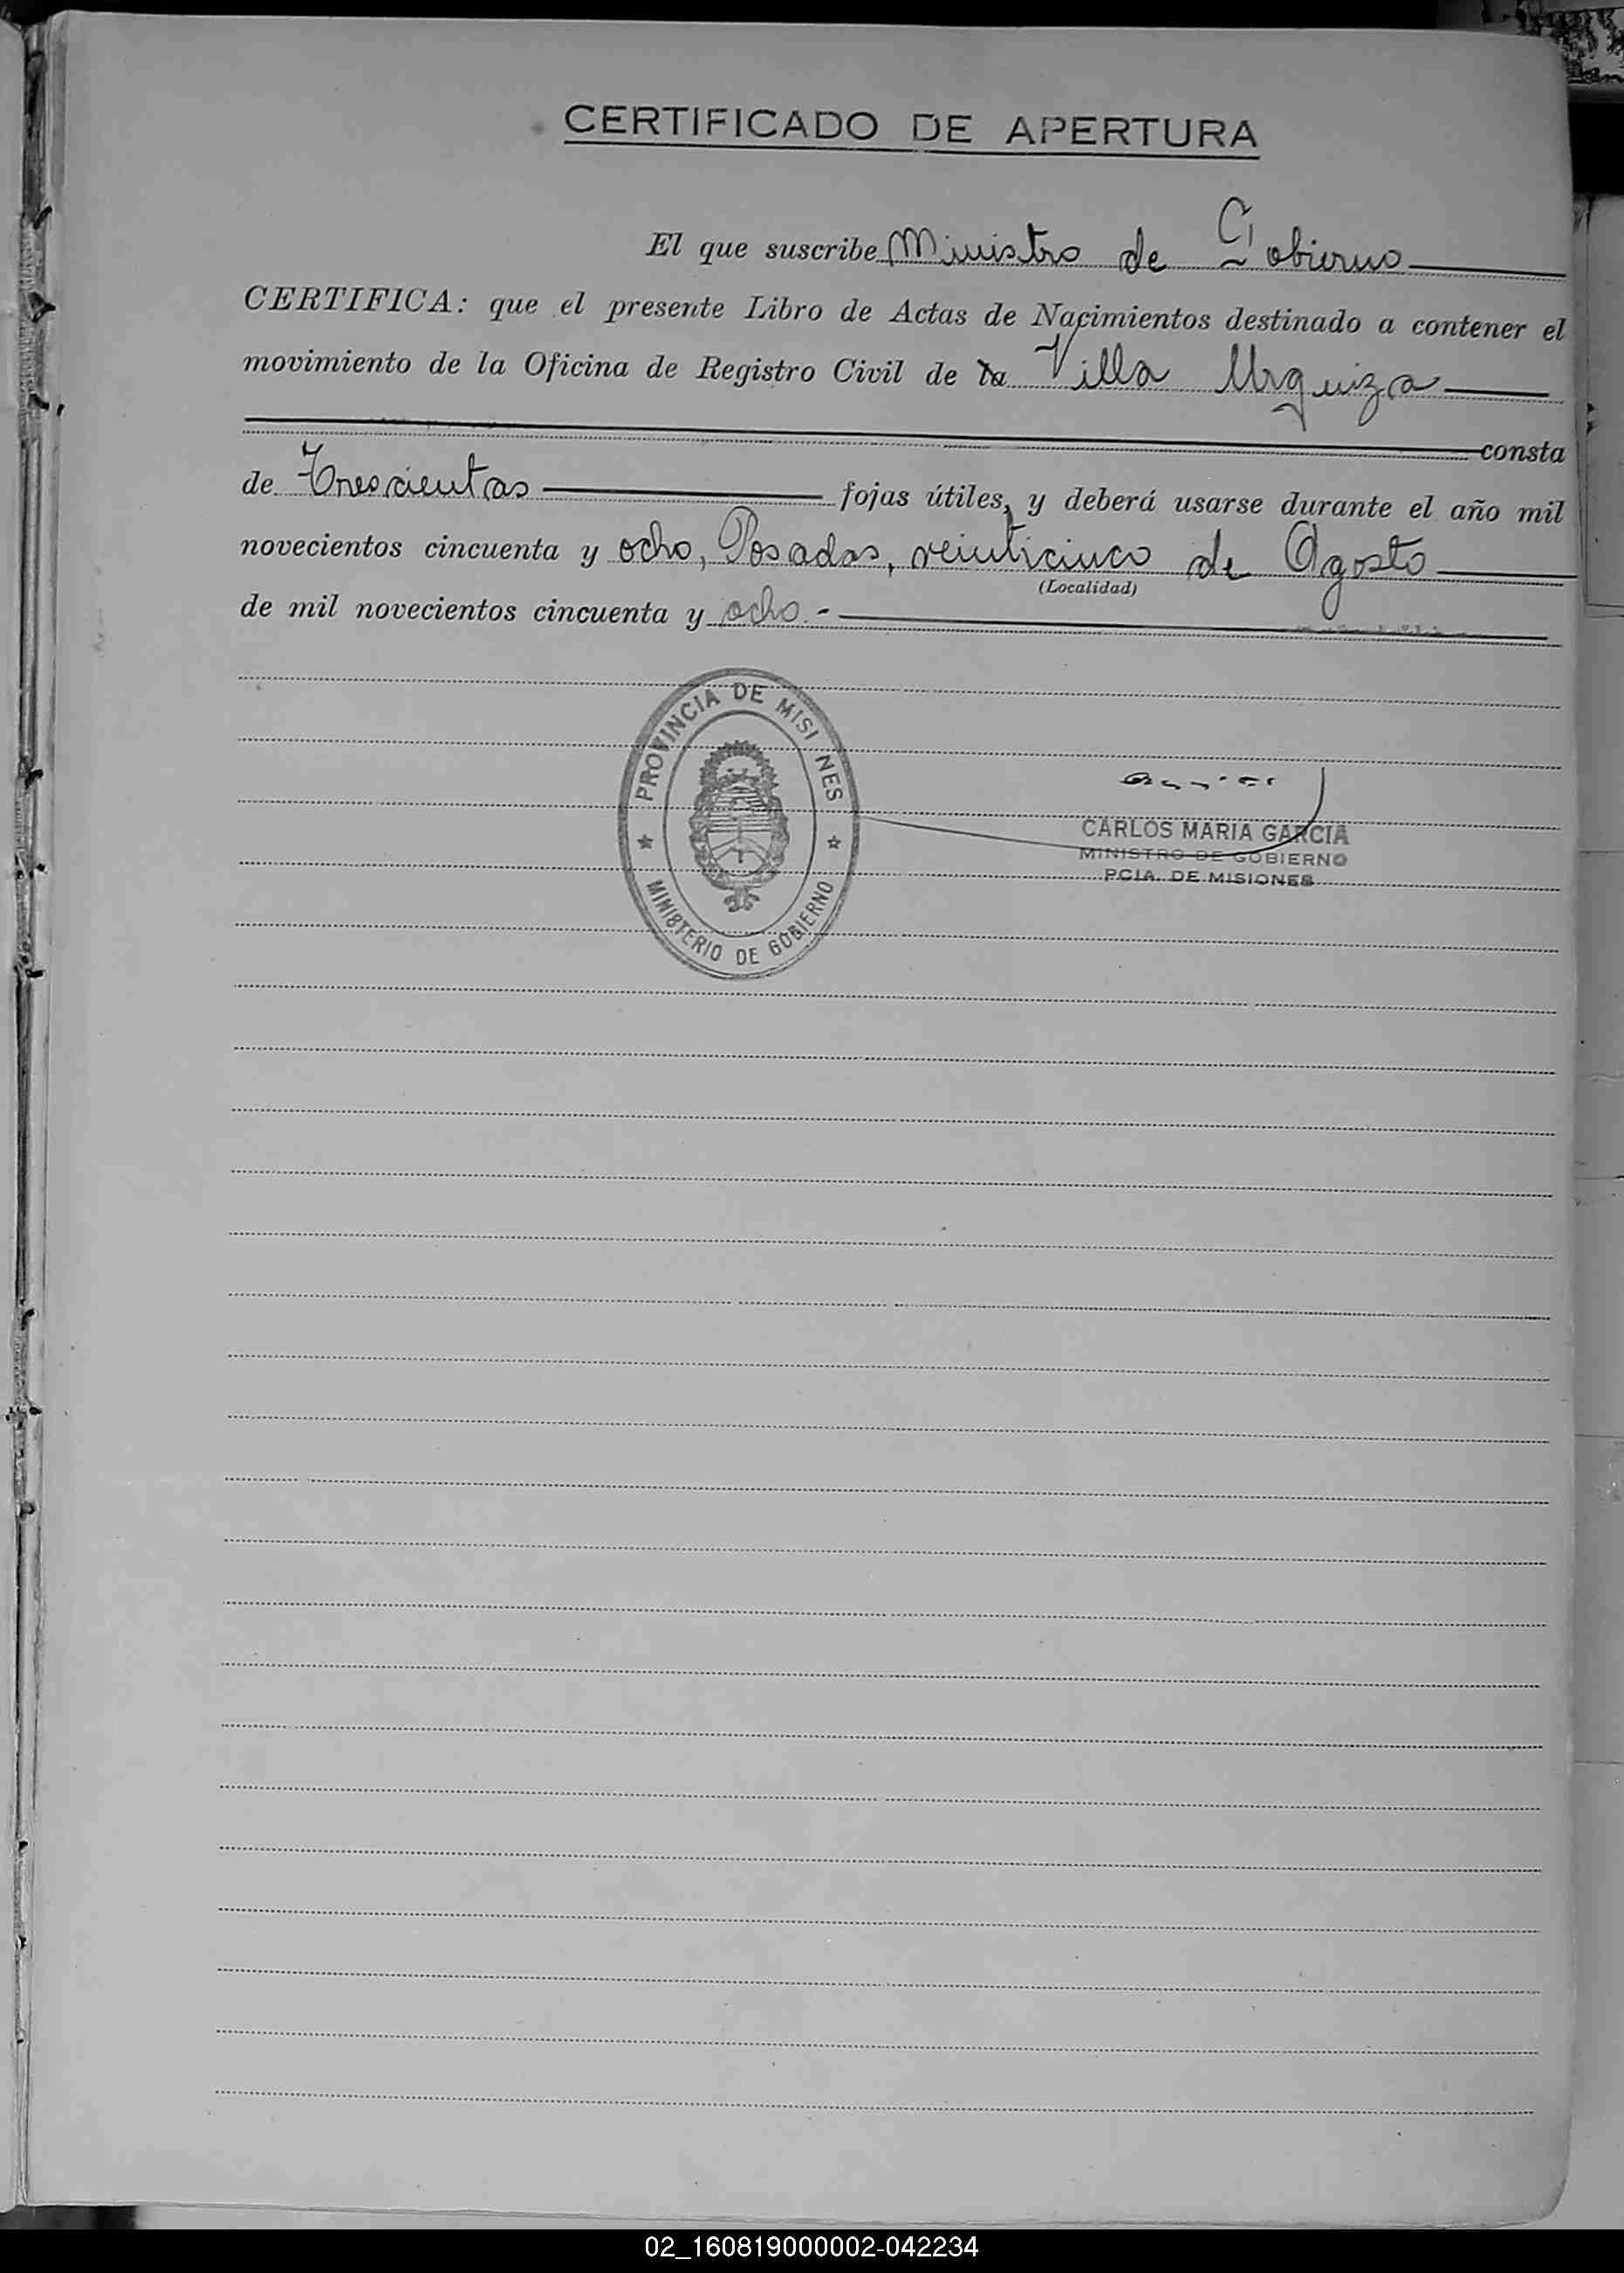 CERTIFICADO DE APERTURA
El que suscribe Ministro de Gobierno
CERTIFICA: que el presente Libro de Actas de Nacimientos destinado a contener el
movimiento de la Oficina de Registro Civil de la Villa Urquiza
consta
de Trescientas fojas útiles, y deberá usarse durante el año mil
novecientos cincuenta y ocho, Posadas, veinticinco de Agosto
(Localidad)
de mil novecientos cincuenta y ocho.-
PROVINCIA DE MISI NES
MINISTERIO DE GOBIERNO
CARLOS MARIA GARCIA
MINISTRO DE GOBIERNO
PCIA. DE MISIONES
02_160819000002-042234